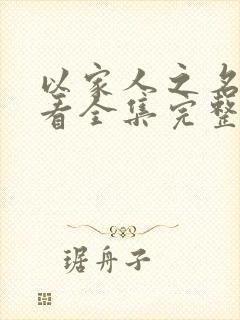 以家人之名
看全集完整
琚舟子